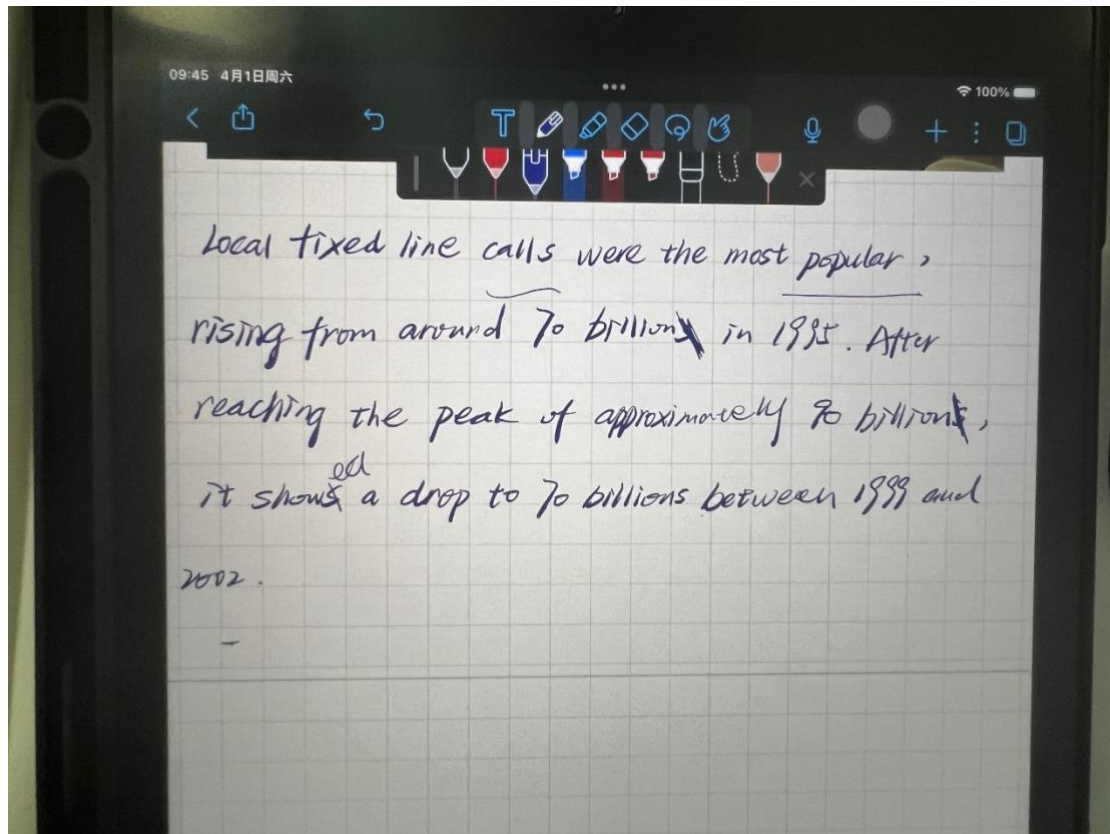 09:45 4月1日周六
100%
Local fixed line calls were the most popular,
rising from around 70 billion in 1995. After
reaching the peak of approximately 90 billion,
it showed a drop to 70 billions between 1999 and
2002.
-